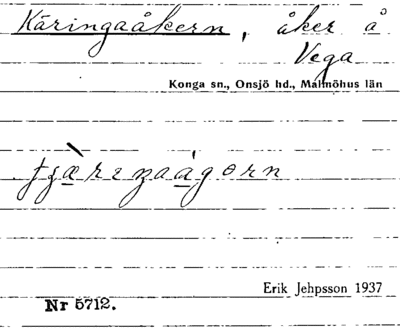 Käringaåkern, åker å
Vega
Konga sn., Onsjö hd., Malmöhus län
Erik Jehpsson 1937
Nr 5712.